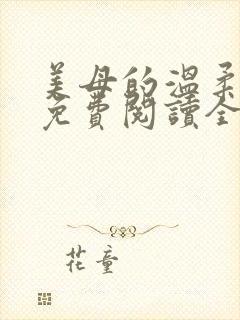 美母的溫柔
免費閱讀全
花童